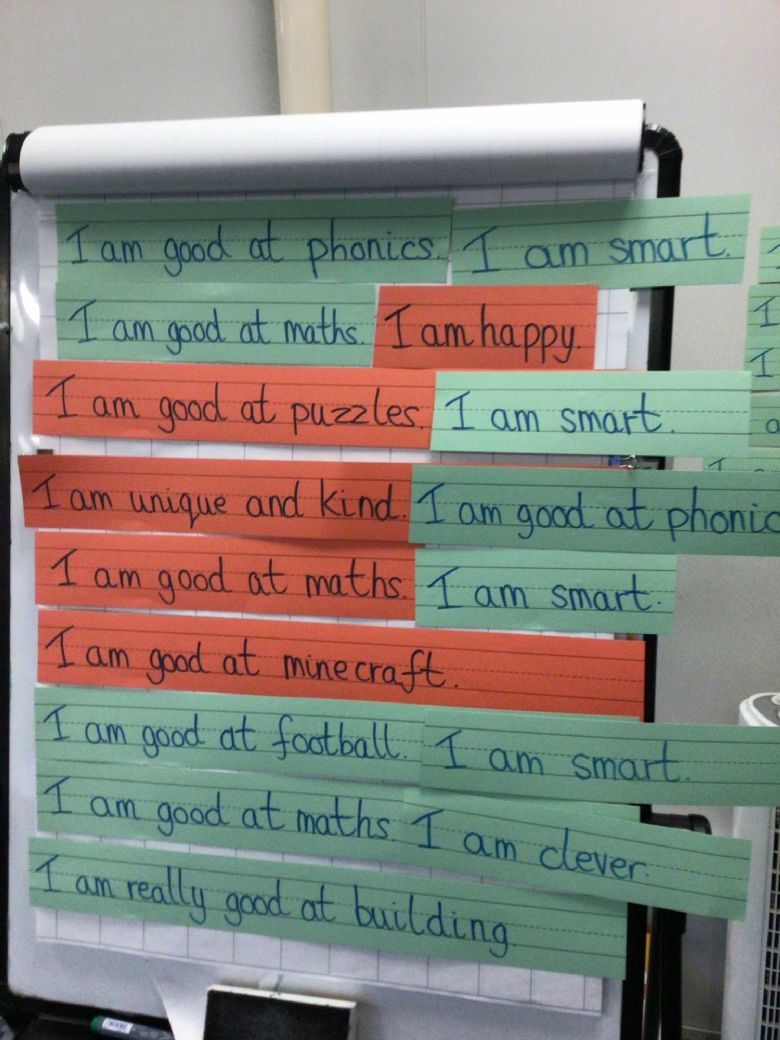 I am good at phonics. I am smart.
I am good at maths. I am happy.
I am good at puzzles. I am smart.
I am unique and kind. I am good at phonic
I am good at maths. I am smart.
I am good at minecraft.
I am good at football. I am smart.
I am good at maths. I am clever.
I am really good at building.